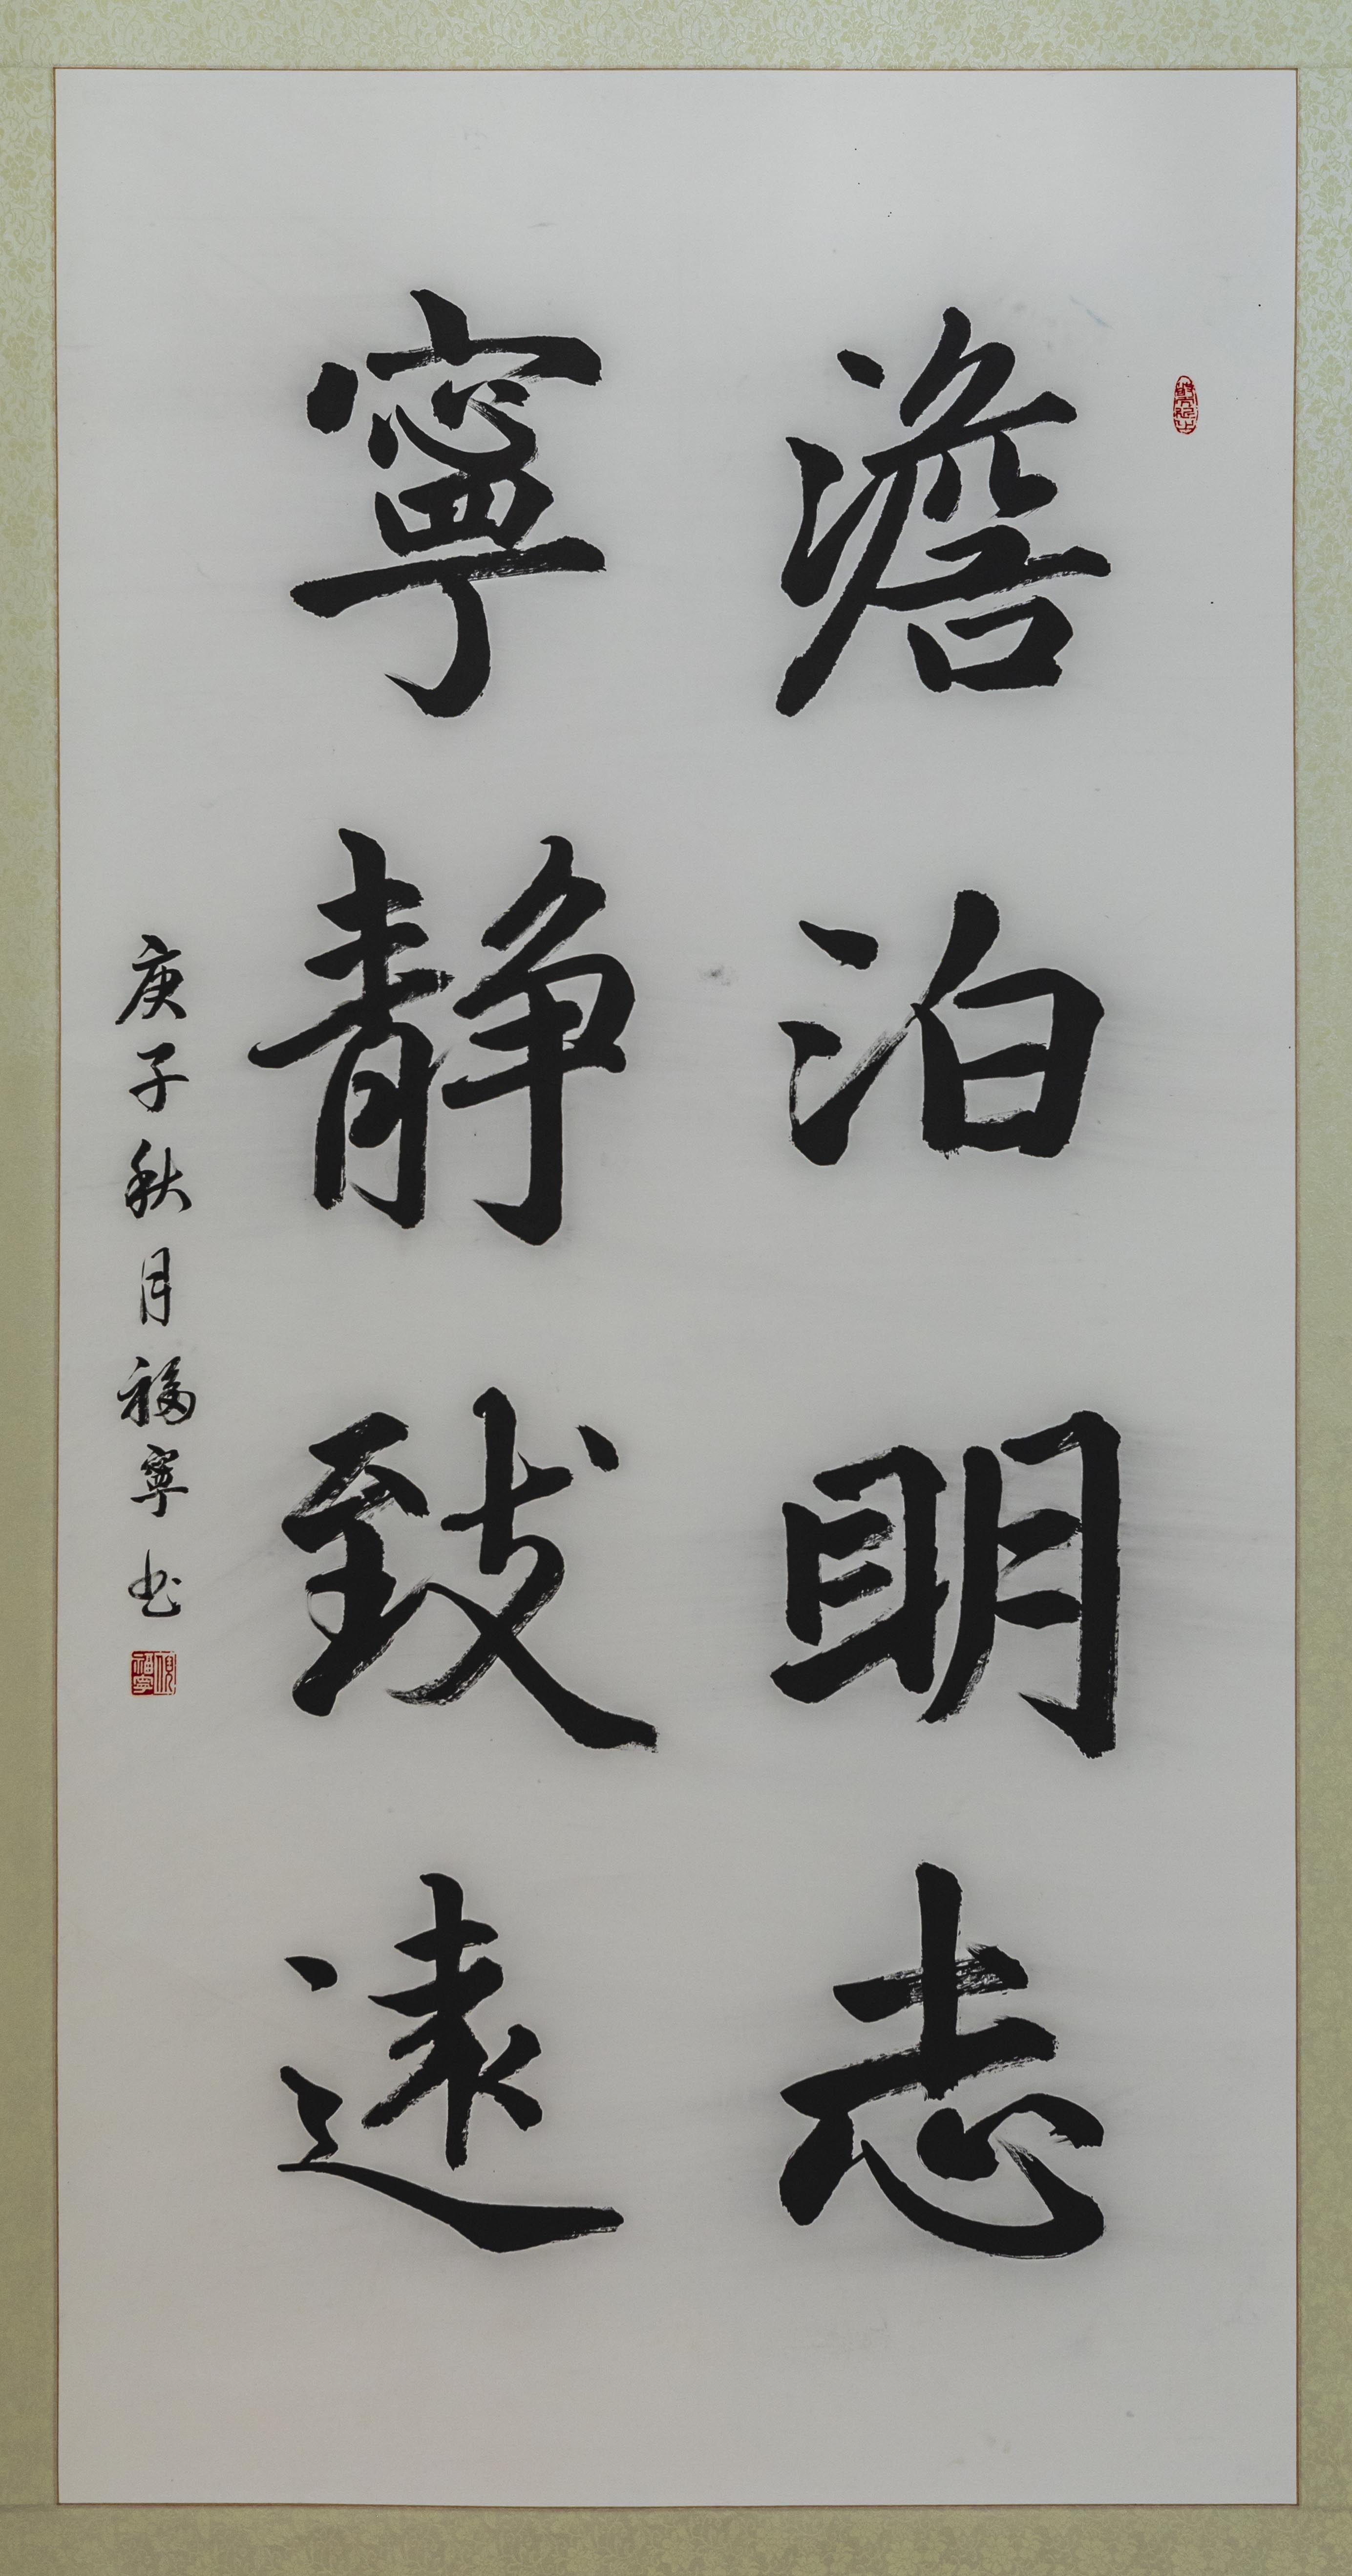 澹泊明志
寧靜致遠
庚子秋月福寧书